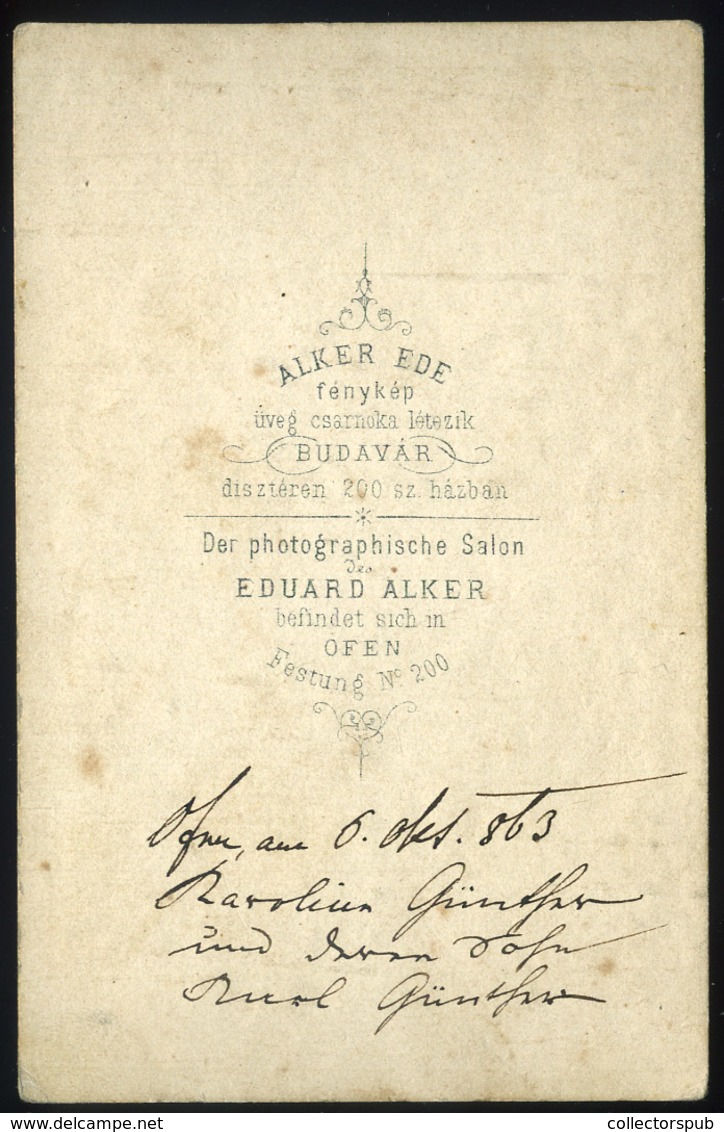 ALKER EDE
fénykép
üveg csarnoka létezik
BUDAVÁR
disztéren 200 sz. házban
Der photographische Salon
des
EDUARD ALKER
befindet sich in
OFEN
Festung No. 200
Ofen, am 6. Okt. 863
Karoline Günther
und deren Sohn
Karl Günther
collectorspub